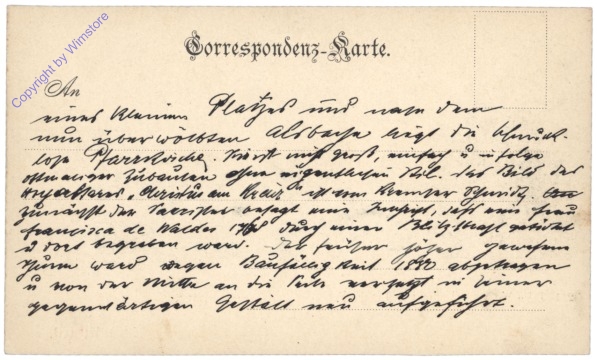 Copyright by Wimstore
Correspondenz-Karte.
An
eines kleinen Platzes und nahe dem
nun überwölbten Alsbache liegt die schmuck-
lose Pfarrkirche. nicht groß, einfach u infolge
oftmaliger Zubauten ohne eigentlichen Stil. das Bild des
Hochaltares „Christus am Kreuz" ist vom Kremser Schmidt.
zunächst der besagt eine Inschrift, daß eine Frau
Francisca de Waldes durch einen Blitzstrahl getötet
u dort begraben ward. Der früher höher gewesene
Turm ward wegen Baufälligkeit 1880 abgetragen
u von der Mitte an die Seite versetzt in seiner
gegenwärtigen Gestalt neu aufgeführt.